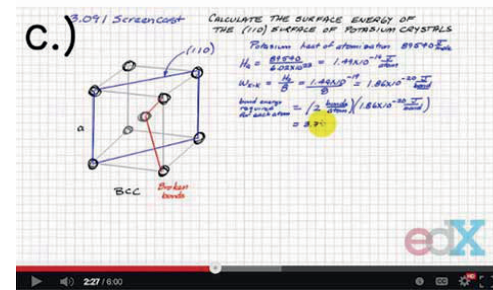 c.)
3.091 Screencast
CALCULATE THE SURFACE ENERGY OF
THE (110) SURFACE OF POTASSIUM CRYSTALS
Potassium heat of atomization 89540 J/mole
(110)
Ha = 89540 / 6.02x10²³ = 1.49x10⁻¹⁹ J/atom
WK-K = Ha / 8 = 1.49x10⁻¹⁹ / 8 = 1.86x10⁻²⁰ J/bond
bond energy
required
for each atom
= (2 bonds/atom)(1.86x10⁻²⁰ J/bond)
= 3.7
a
BCC
Broken
bonds
edX
2:27 / 6:00
CC
HD